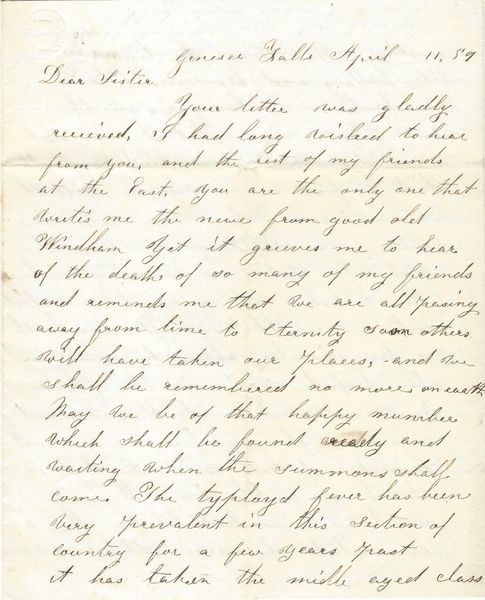 Genesee Falls April 11, 59
Dear Sister
Your letter was gladly
recieved, I had long wished to hear
from you, and the rest of my friends
at the East, you are the only one that
writes me the news from good old
Windham Yet it grieves me to hear
of the death, of so many of my friends
and reminds me that we are all passing
away from time to eternity soon others
will have taken our places, and we
shall be remembered no more on earth
May we be of that happy number
which shall be found ready and
waiting when the summons shall
come. The typhoyd fever has been
very prevalent in this section of
country for a few years past
it has taken the midle aged class